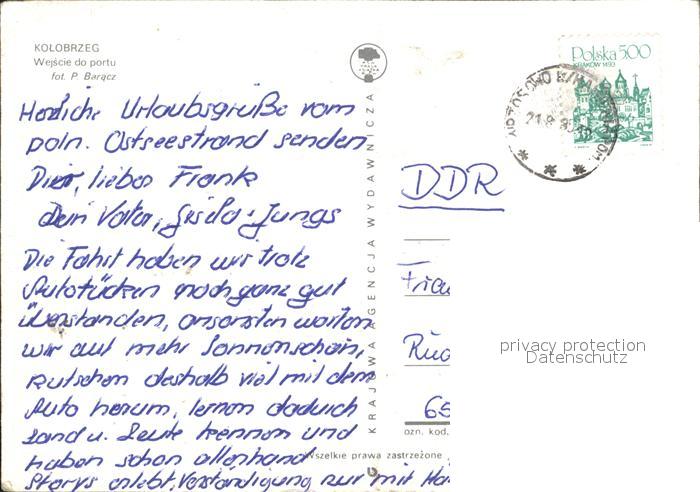 KOŁOBRZEG
Wejście do portu
fot. P. Barącz
Herzliche Urlaubsgrüße vom
poln. Ostseestrand senden
Dir, lieber Frank
dein Vater, Gisela + Jungs
Die Fahrt haben wir trotz
Autotücken noch ganz gut
überstanden, ansonsten warten
wir auf mehr Sonnenschein,
rutschen deshalb viel mit dem
Auto herum, lernen dadurch
Land u. Leute kennen und
haben schon allerhand
Storys erlebt, Verständigung nur mit
KRAJOWA AGENCJA WYDAWNICZA
Polska 5,00
KRAKÓW 1493
21.8
DDR
65
ozn. kod.
Wszelkie prawa zastrzeżone
privacy protection
Datenschutz